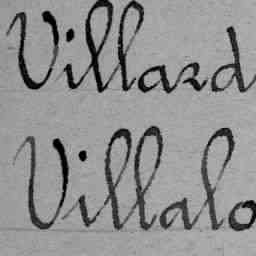 Villard
Villalo